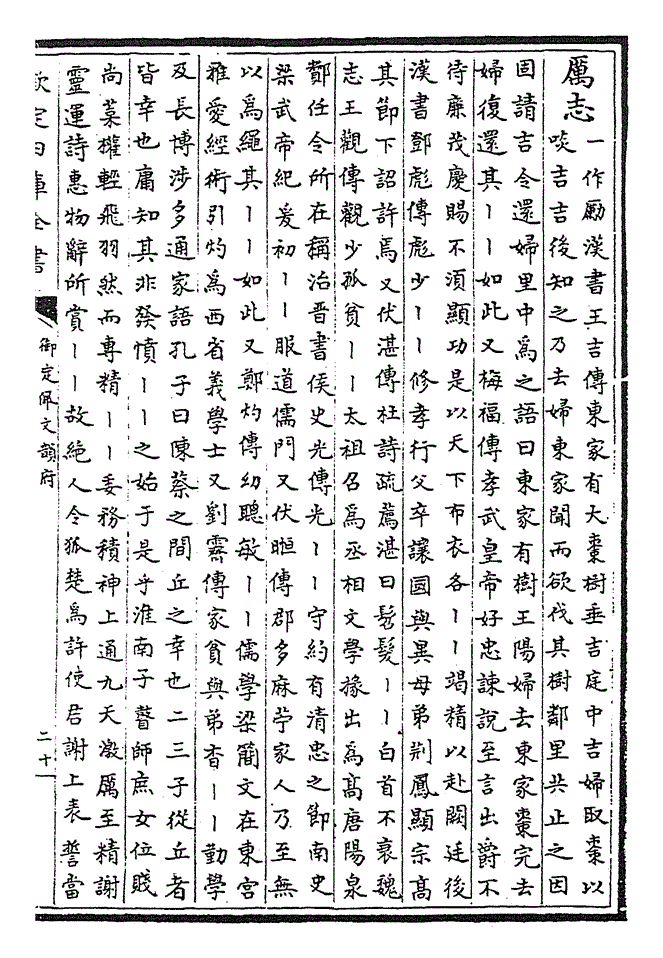 厲志一作勵漢書王吉傳東家有大棗樹垂吉庭中吉婦取棗以
啖吉吉後知之乃去婦東家聞而欲伐其樹鄰里共止之因
固請吉令還婦里中為之語曰東家有樹王陽婦去東家棗完去
婦復還其丨丨如此又梅福傳孝武皇帝好忠諫說至言出爵不
待廉茂慶賜不須顯功是以天下布衣各丨丨竭精以赴闕廷後
漢書鄧彪傳彪少丨丨修孝行父卒讓國與異母弟荆鳳顯宗高
其節下詔許焉又伏湛傳杜詩疏薦湛曰髫髮丨丨白首不衰魏
志王觀傳觀少孤貧丨丨太祖召為丞相文學掾出為髙唐陽泉
酇任令所在稱治晉書侯史光傳光丨丨守約有清忠之節南史
梁武帝紀爰初丨丨服道儒門又伏暅傳郡多麻苧家人乃至無
以為繩其丨丨如此又鄭灼傳幼聰敏丨丨儒學梁簡文在東宮
雅愛經術引灼為西省義學士又劉霽傳家貧與弟杳丨丨勤學
及長博涉多通家語孔子曰陳蔡之間丘之幸也二三子從丘者
皆幸也庸知其非發憤丨丨之始于是乎淮南子瞽師庶女位賤
尚菒權輕飛羽然而專精丨丨委務積神上通九天激厲至精謝
靈運詩惠物辭所賞丨丨故絶人令狐楚為許使君謝上表誓當
欽定四庫全書
御定佩文韻府
二十